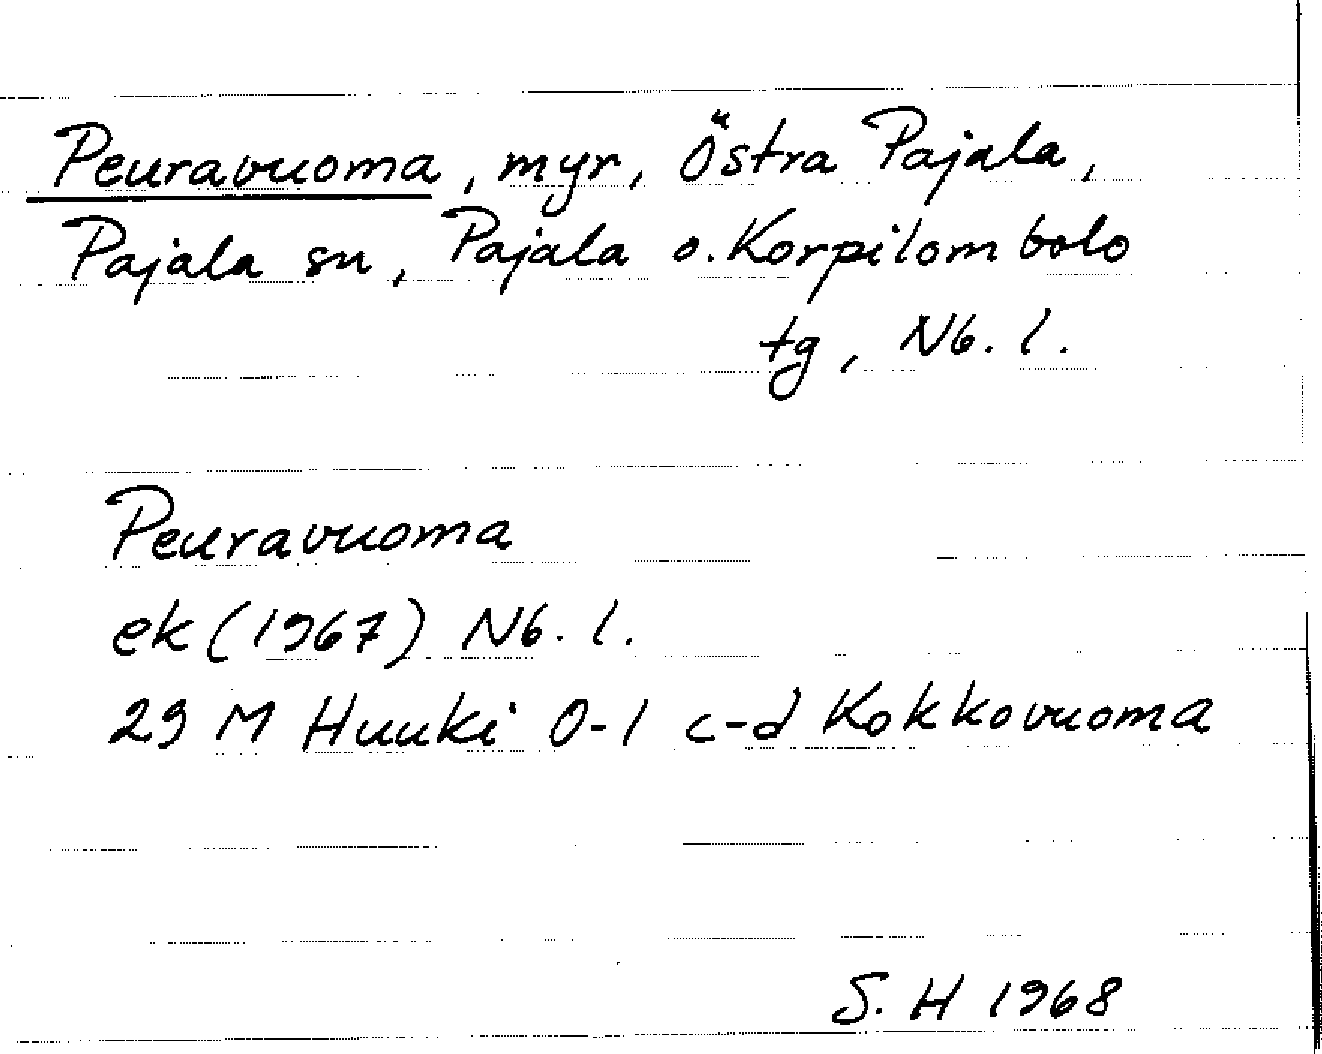 Peuravuoma, myr, Östra Pajala,
Pajala sn, Pajala o. Korpilombolo
tg, Nb. l.
Peuravuoma
ek (1967) Nb. l.
29 M Huuki 0-1 c-d Kokkovuoma
S. H 1968